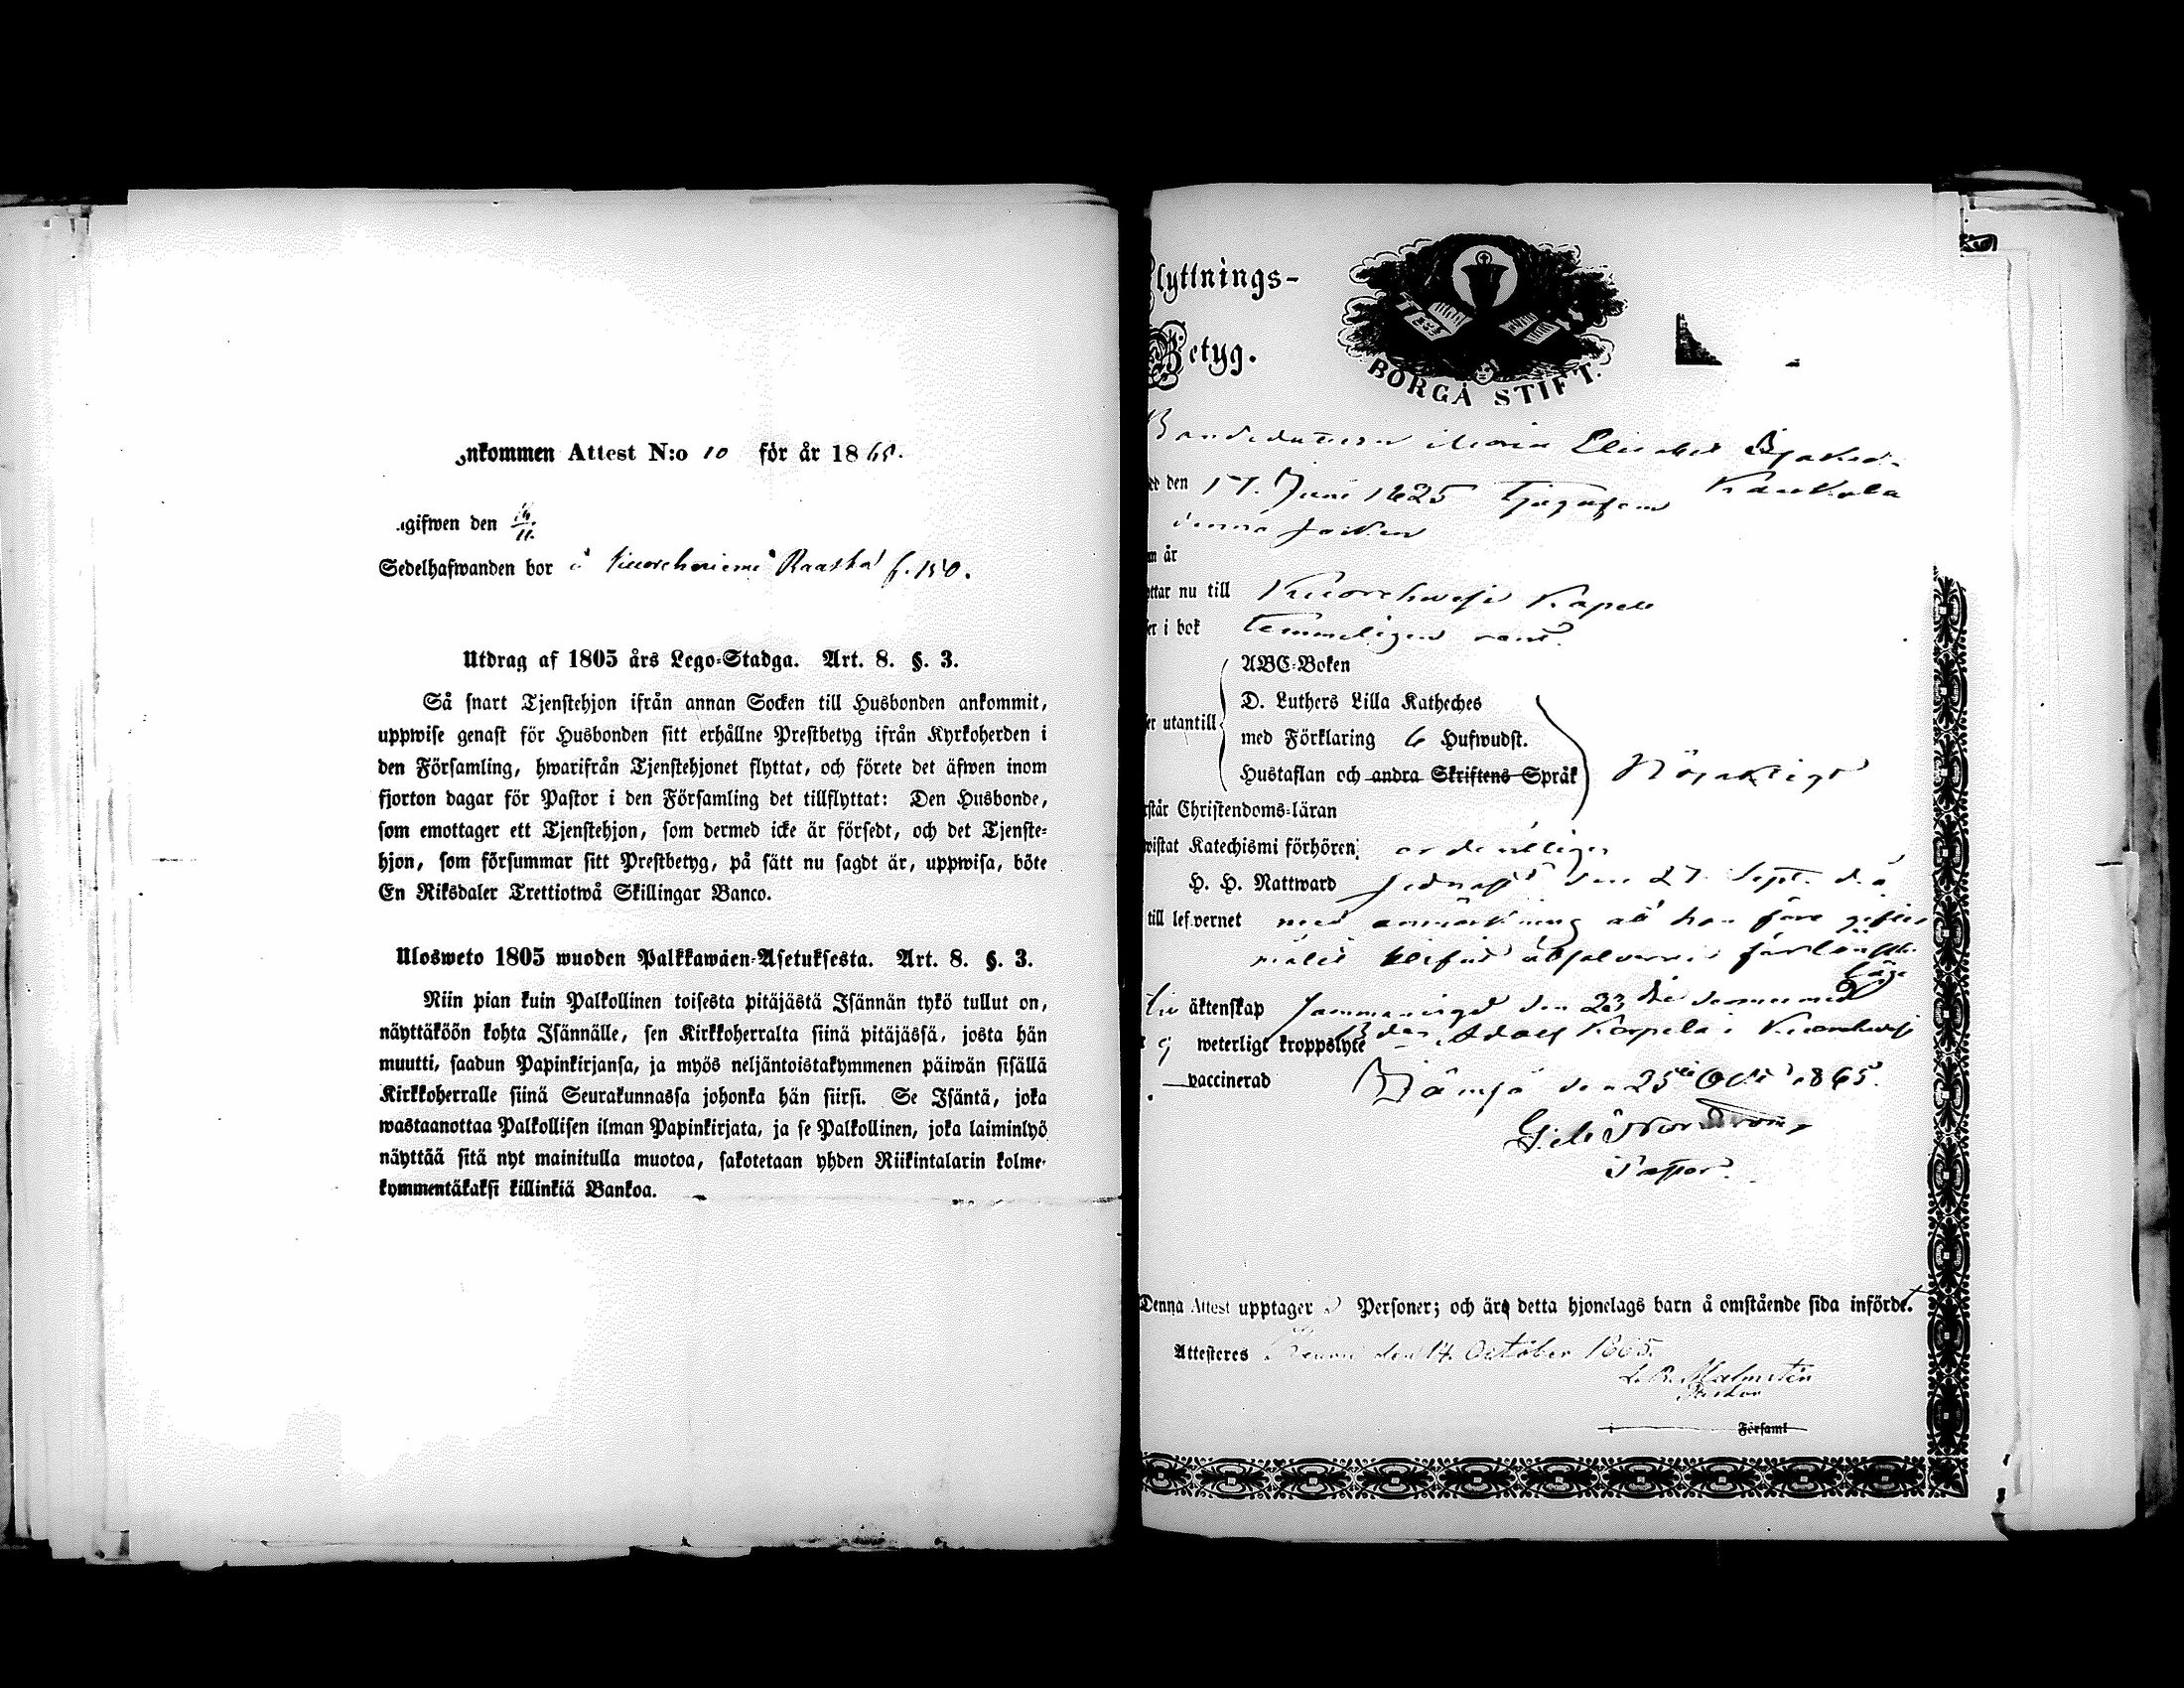 nkommen Attest N:o 10 för år 1865.
gifwen den 16/11.
Sedelhafwanden bor å Kuorehuiemi Raaska f. 150.
Utdrag af 1805 års Lego-Stadga. Art. 8. §. 3.
Så snart Tjenstehjon ifrån annan Socken till Husbonden ankommit,
uppwise genast för Husbonden sitt erhållne Prestbetyg ifrån Kyrkoherden i
den Församling, hwarifrån Tjenstehjonet flyttat, och förete det äfwen inom
fjorton dagar för Pastor i den Församling det tillflyttat: Den Husbonde,
som emottager ett Tjenstehjon, som dermed icke är försedt, och det Tjenste-
hjon, som försummar sitt Prestbetyg, på sätt nu sagdt är, uppwisa, böte
En Riksdaler Trettiotwå Skillingar Banco.
Ulosweto 1805 wuoden Palkkawäen-Asetuksesta. Art. 8. §. 3.
Niin pian kuin Palkollinen toisesta pitäjästä Isännän tykö tullut on,
näyttäköön kohta Isännälle, sen Kirkkoherralta siinä pitäjässä, josta hän
muutti, saadun Papinkirjansa, ja myös neljäntoistakymmenen päiwän sisällä
Kirkkoherralle siinä Seurakunnassa johonka hän siirsi. Se Isäntä, joka
wastaanottaa Palkollisen ilman Papinkirjata, ja se Palkollinen, joka laiminlyö
näyttää sitä nyt mainitulla muotoa, sakotetaan yhden Riikintalarin kolme-
kymmentäkaksi killinkiä Bankoa.
lyttnings-
Betyg.
BORGÅ STIFT.
Bondedottren Maria Elisabet
den 17. Juni 1825 Kaukola
denna socken
år
ttar nu till Kuorehwesi Kapell
i bok temmeligen rent.
ABC-Boken
D. Luthers Lilla Katheches
utantill
med Förklaring 6 Hufwudst.
Hustaflan och andra Skriftens Språk Nöjaktigt
står Christendoms-läran
wistat Katechismi förhören ordentligen
H. H. Nattward sednast den 27 Sept. d. å
till lefvernet med anmärkning att hon före gifter
målet blifvit
äktenskap Sammanvigd den 23 dennes med
ej weterligt kroppslyte Adolf Korpela i Kuorehwesi
vaccinerad Jämsä den 25 Oct. 1865.
Nordström
Pastor.
Denna Attest upptager Personer; och äro detta hjonelags barn å omstående sida införde.
Attesteras den 14 October 1865.
L. R. Malmstén
Pastor
i Församl